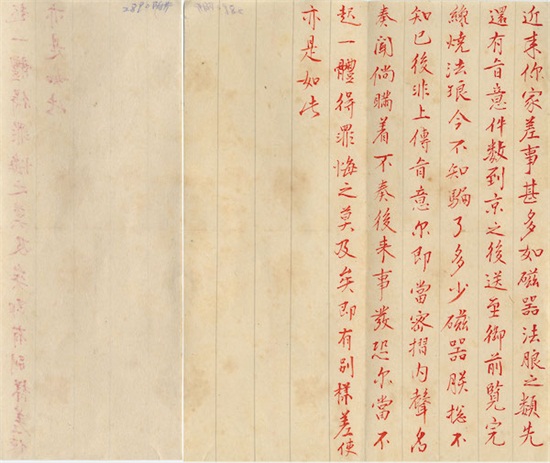 近来你家差事甚多如磁器法瑯之類先
還有旨意件數到京之後送至御前覽完
纔燒法琅今不知騙了多少磁器朕総不
知已後非上傳旨意尔即當密摺内聲名
奏聞倘瞞着不奏後来事發恐尔當不
起一體得罪悔之莫及矣即有別樣差使
亦是如此